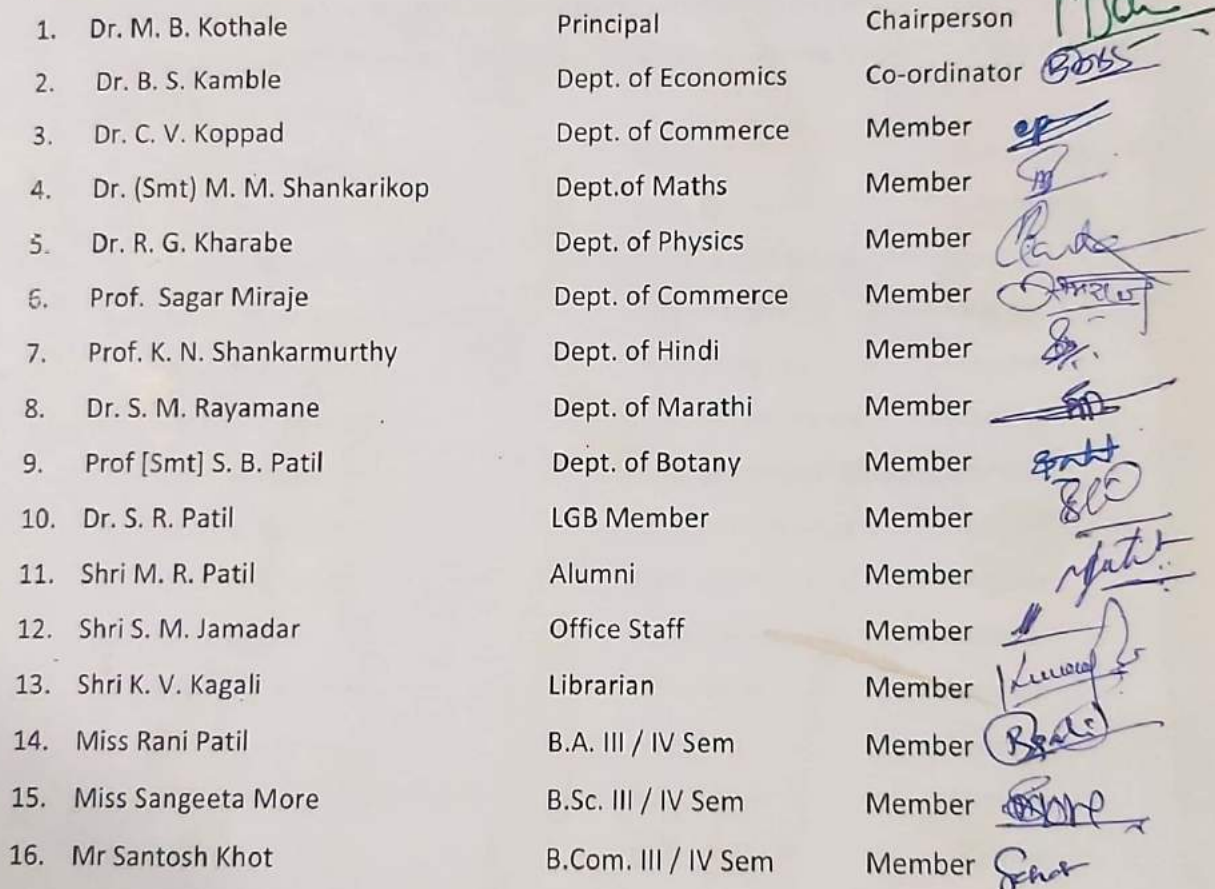 1. Dr. M. B. Kothale Principal Chairperson
2. Dr. B. S. Kamble Dept. of Economics Co-ordinator
3. Dr. C. V. Koppad Dept. of Commerce Member
4. Dr. (Smt) M. M. Shankarikop Dept.of Maths Member
5. Dr. R. G. Kharabe Dept. of Physics Member
6. Prof. Sagar Miraje Dept. of Commerce Member
7. Prof. K. N. Shankarmurthy Dept. of Hindi Member
8. Dr. S. M. Rayamane Dept. of Marathi Member
9. Prof [Smt] S. B. Patil Dept. of Botany Member
10. Dr. S. R. Patil LGB Member Member
11. Shri M. R. Patil Alumni Member
12. Shri S. M. Jamadar Office Staff Member
13. Shri K. V. Kagali Librarian Member
14. Miss Rani Patil B.A. III / IV Sem Member
15. Miss Sangeeta More B.Sc. III / IV Sem Member
16. Mr Santosh Khot B.Com. III / IV Sem Member